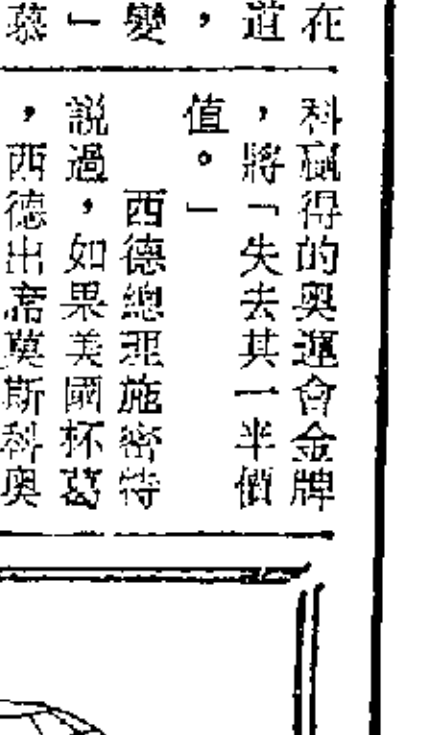 在
道
，
變
﹂
慕
科贏得的奧運會金牌
，將「失去其一半價
值。」
西德總理施密特
説過，如果美國杯葛
，西德出席莫斯科奧